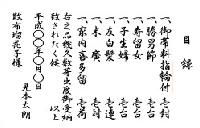 目録
一、御帯料指輪付 壱封
一、勝男節 壱台
一、寿留女 壱台
一、子生婦 壱台
一、友白髪 壱台
一、末廣 壱対
一、家内喜多留 壱荷
右之品幾久敷芽出度御受納
致されたく候 以上
平成〇〇年〇月〇日
見本太郎
花子様